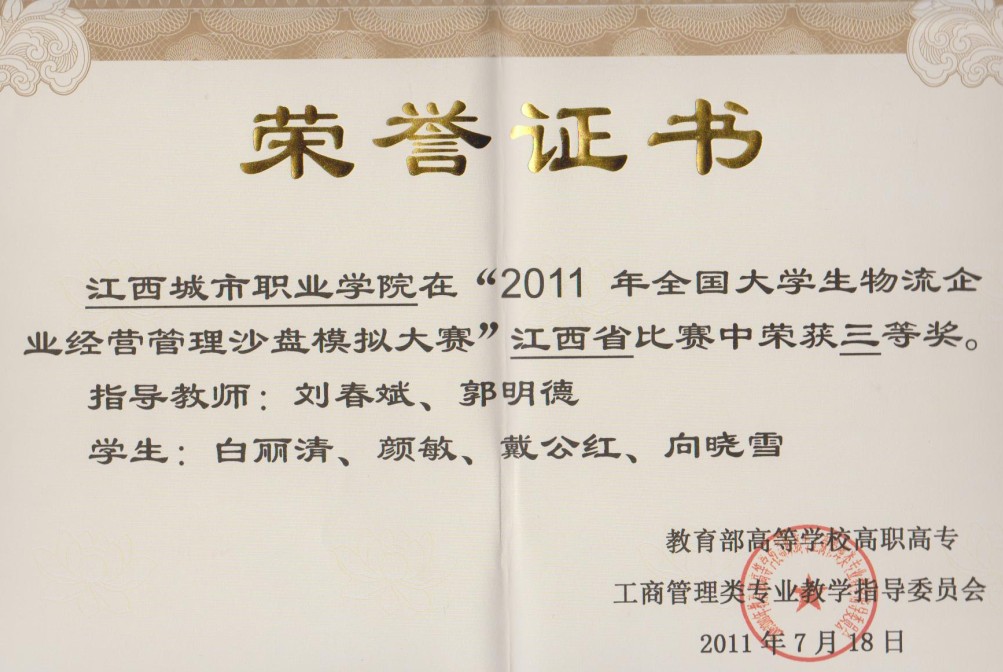 荣誉证书
江西城市职业学院在“2011 年全国大学生物流企
业经营管理沙盘模拟大赛”江西省比赛中荣获三等奖。
指导教师：刘春斌、郭明德
学生：白丽清、颜敏、戴公红、向晓雪
教育部高等学校高职高专
工商管理类专业教学指导委员会
2011 年 7 月 18 日